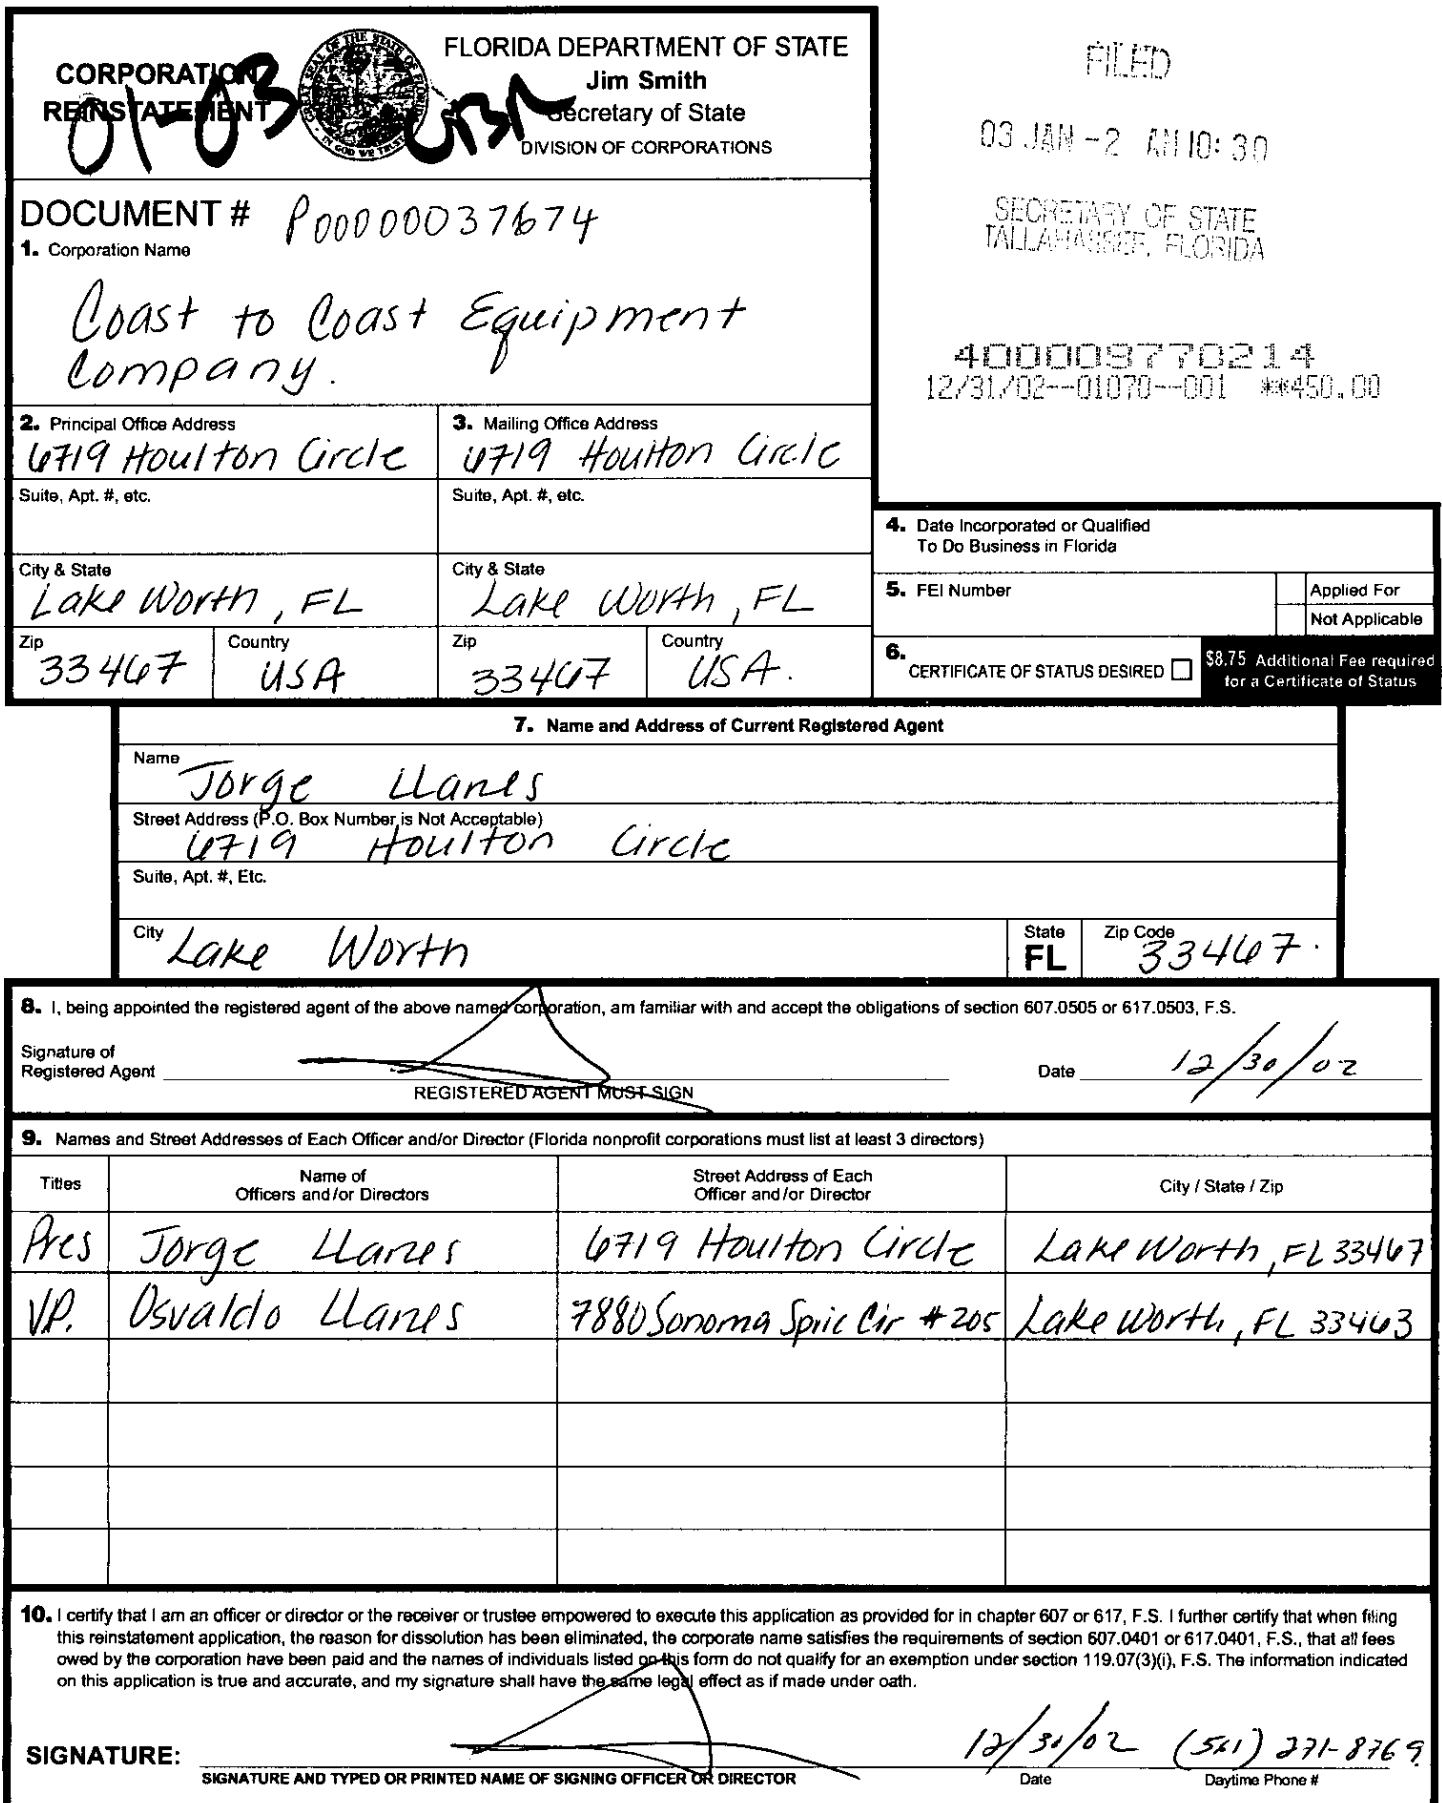 CORPORATION
REINSTATEMENT
01-03
FLORIDA DEPARTMENT OF STATE
Jim Smith
Secretary of State
DIVISION OF CORPORATIONS
FILED
03 JAN -2 AM 10: 30
SECRETARY OF STATE
TALLAHASSEE, FLORIDA
DOCUMENT # P00000037674
1. Corporation Name
Coast to Coast Equipment
Company.
400009770214
12/31/02--01070--001 **450.00
2. Principal Office Address
6719 Houlton Circle
3. Mailing Office Address
6719 Houlton Circle
Suite, Apt. #, etc.
Suite, Apt. #, etc.
City & State
Lake Worth, FL
City & State
Lake Worth, FL
Zip
33467
Country
USA
Zip
33467
Country
USA.
4. Date Incorporated or Qualified
To Do Business in Florida
5. FEI Number
Applied For
Not Applicable
6. CERTIFICATE OF STATUS DESIRED
$8.75 Additional Fee required
for a Certificate of Status
7. Name and Address of Current Registered Agent
Name
Jorge Llanes
Street Address (P.O. Box Number is Not Acceptable)
6719 Houlton Circle
Suite, Apt. #, Etc.
City
Lake Worth
State
FL
Zip Code
33467.
8. I, being appointed the registered agent of the above named corporation, am familiar with and accept the obligations of section 607.0505 or 617.0503, F.S.
Signature of
Registered Agent
REGISTERED AGENT MUST SIGN
Date 12/30/02
9. Names and Street Addresses of Each Officer and/or Director (Florida nonprofit corporations must list at least 3 directors)
Titles
Name of
Officers and/or Directors
Street Address of Each
Officer and/or Director
City / State / Zip
Pres Jorge Llanes 6719 Houlton Circle Lake Worth, FL 33467
V.P. Osvaldo Llanes 7880 Sonoma Cir #205 Lake Worth, FL 33463
10. I certify that I am an officer or director or the receiver or trustee empowered to execute this application as provided for in chapter 607 or 617, F.S. I further certify that when filing
this reinstatement application, the reason for dissolution has been eliminated, the corporate name satisfies the requirements of section 607.0401 or 617.0401, F.S., that all fees
owed by the corporation have been paid and the names of individuals listed on this form do not qualify for an exemption under section 119.07(3)(i), F.S. The information indicated
on this application is true and accurate, and my signature shall have the same legal effect as if made under oath.
SIGNATURE:
SIGNATURE AND TYPED OR PRINTED NAME OF SIGNING OFFICER OR DIRECTOR
12/30/02
Date
(561) 271-8769
Daytime Phone #